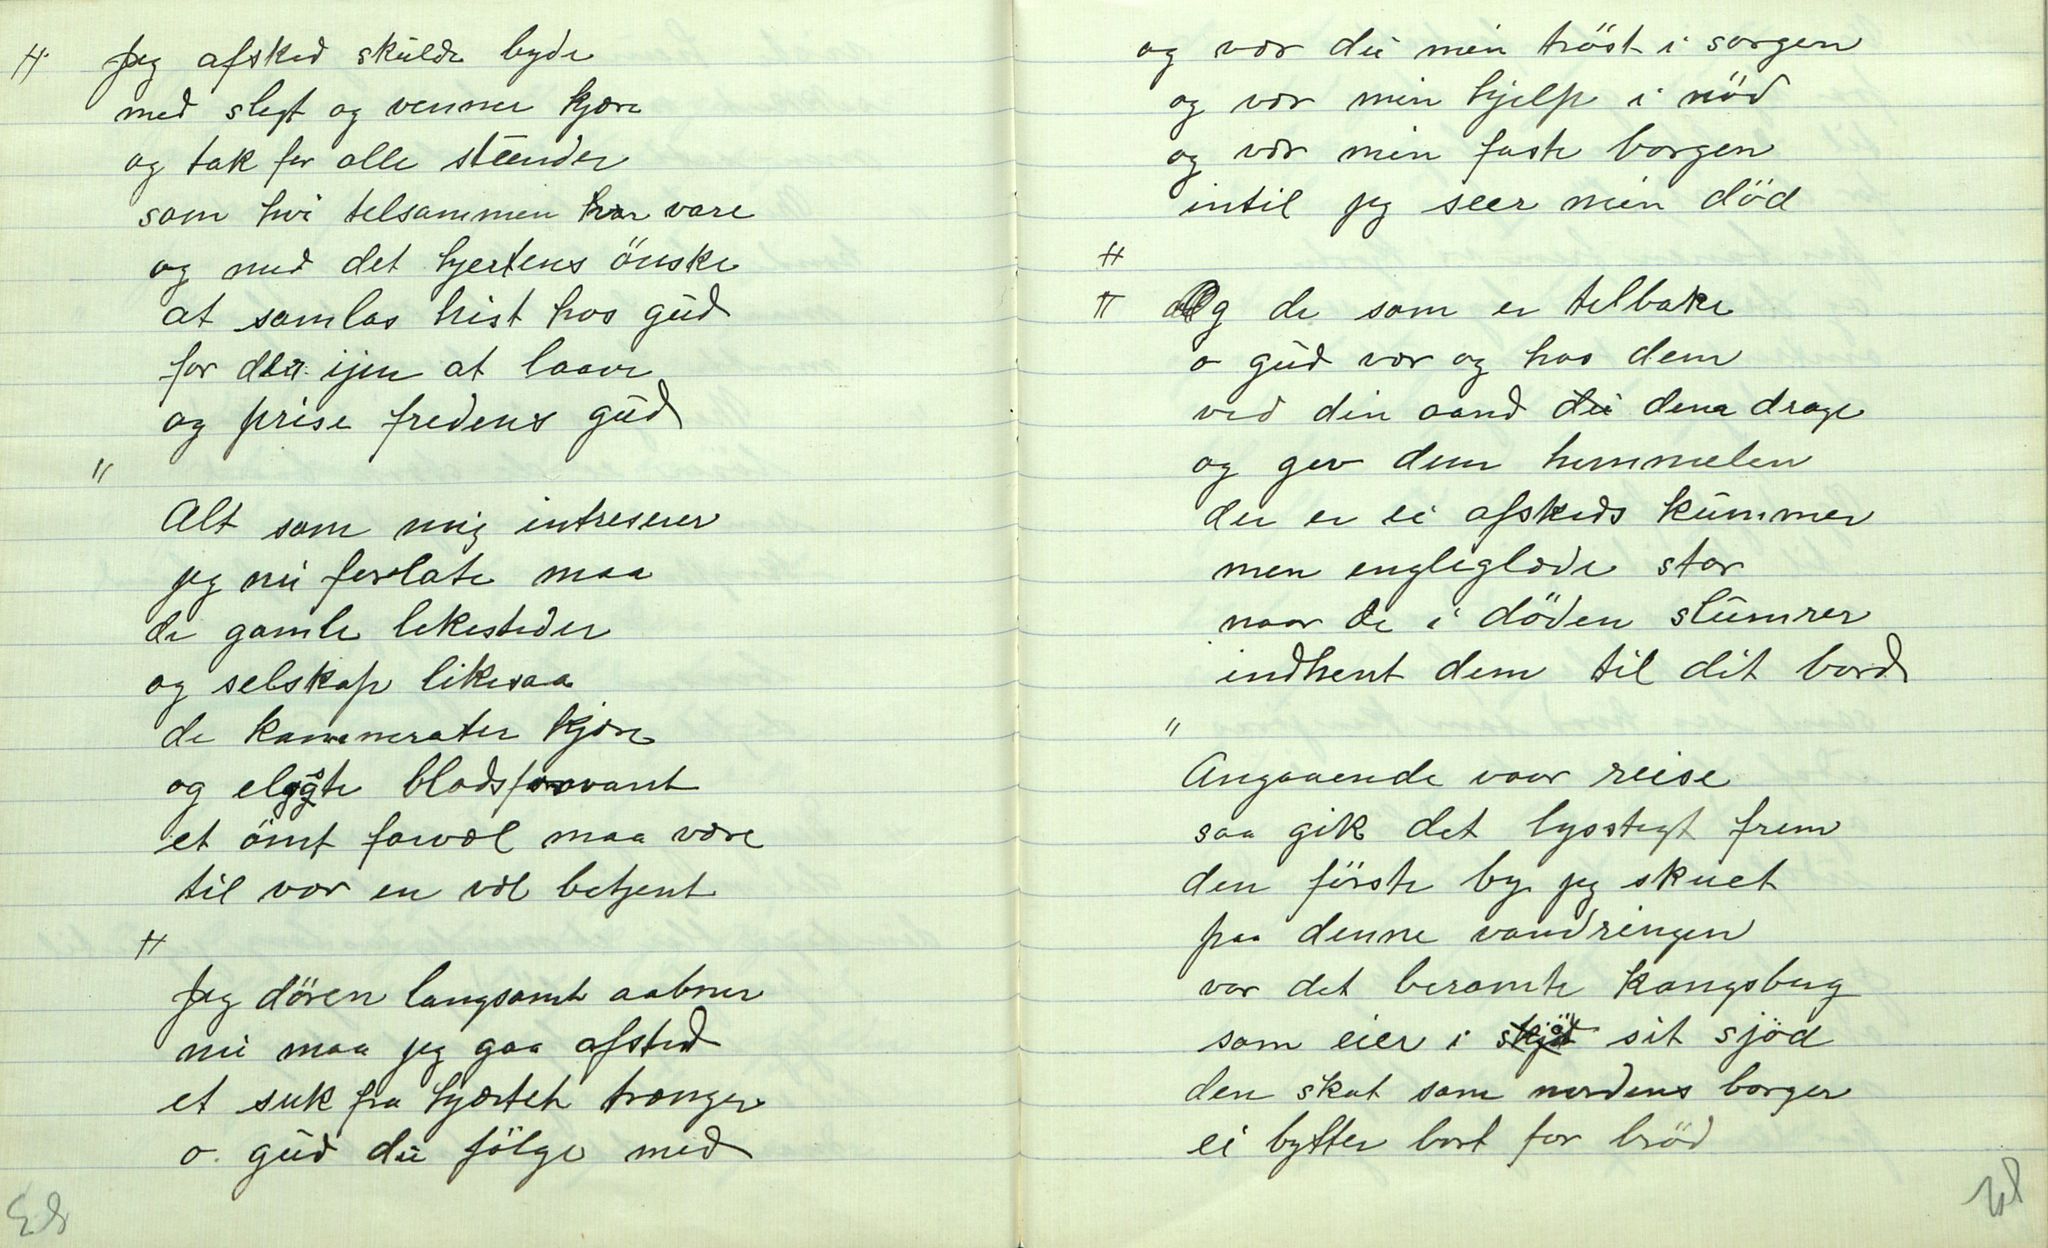 H Jeg afsked skulde byde
med slegt og venner kjære
og tak for alle stunder
som hvi telsammen har vare
og med det hjertens önske
at samlas hist hos gud
for der ijen at laave
og prise fredens gud
"
Alt som mig intreserer
jeg nu forlate maa
de gamle lekesteder
og selskap likesaa
de kammerater kjære
og blodsforvant
et ömt farvæl maa være
til vor en væl betjent
H
Jeg dören langsomt aabner
nu maa jeg gaa afsted
et suk fra hjærtet trænger
o gud du fölge med
og vær du min tröst i sorgen
og vær min hjelp i nöd
og vær min faste borgen
intil jeg seer min död
H
H Og de som er telbake
o gud vær og hos dem
ved din aand du dem drage
og gev dem hemmelen
der er ei afskeds kummer
men engleglæde stor
naar de i döden slumrer
indhent dem til dit bord
"
Angaaende vaar reise
saa gik det lysstegt frem
den förste by jeg skuet
paa denne vandringen
var det beromte Kongsberg
som eier i skjöd sit sjöd
den skat som nordens borger
ei bytter bort for bröd